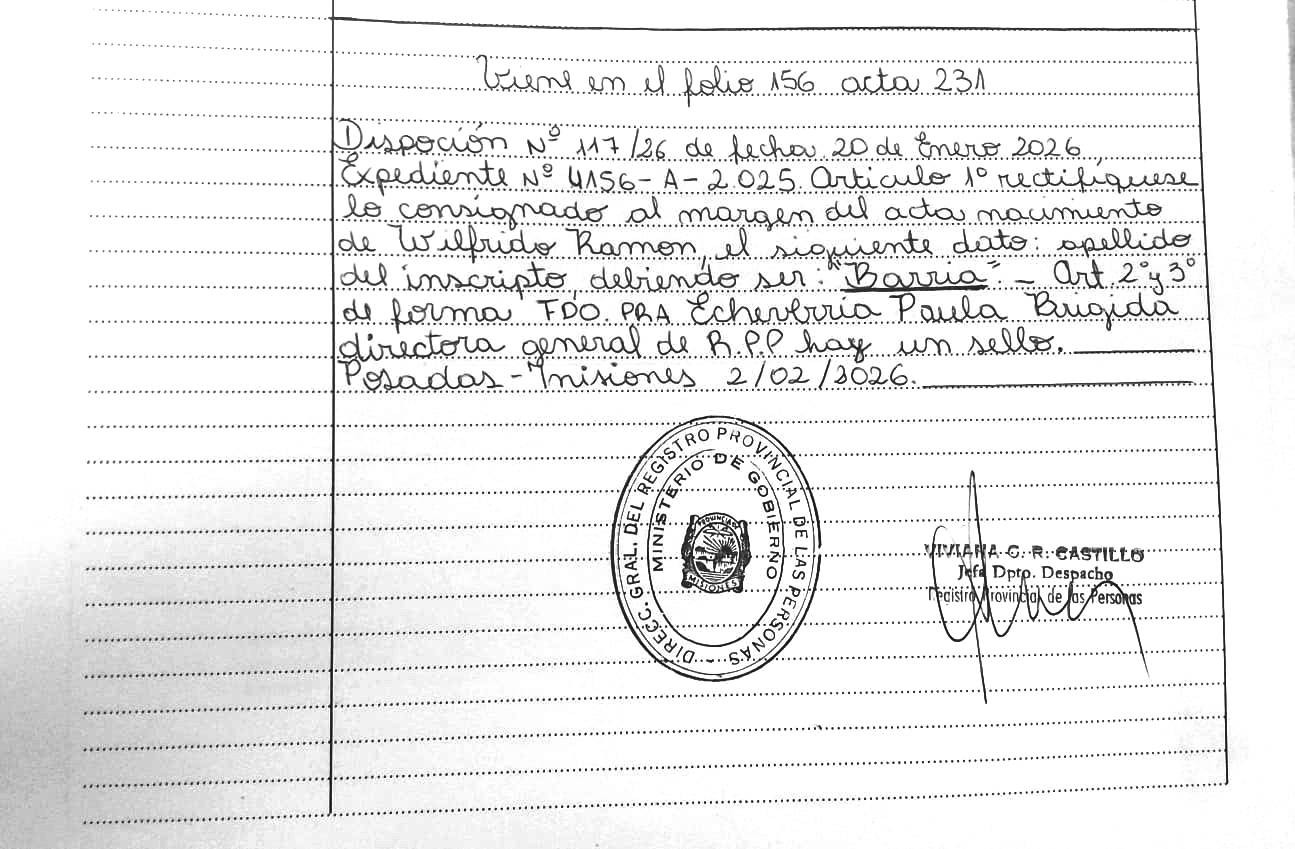 Viene en el folio 156 acta 231
Dispoción Nº 117/26 de fecha 20 de Enero 2026,
Expediente Nº 4156-A-2.025. Articulo 1º rectifiquese
lo consignado al margen del acta nacimiento
de Wilfrido Ramon, el siguiente dato: apellido
del inscripto, debiendo ser: "Barria". - Art. 2º y 3º
de forma FDO. PRA Echeverria Paula Brigida
directora general de R.P.P hay un sello.
Posadas - Misiones 2/02/2026.
DIRECC. GRAL. DEL REGISTRO PROVINCIAL DE LAS PERSONAS -
MINISTERIO DE GOBIERNO
PROVINCIA DE
MISIONES
VIVIANA C. R. CASTILLO
Jefa Dpto. Despacho
Registro Provincial de las Personas